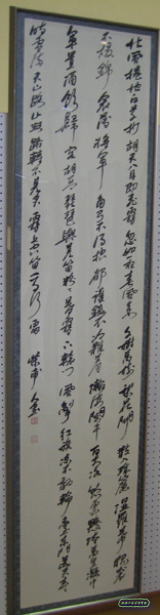 北風捲地白草折胡天八月即飛雪忽如一夜春風來千樹萬樹梨花開散入珠簾濕羅幕狐裘
不煖錦衾薄將軍角弓不得控都護鐵衣冷難着瀚海闌干百丈冰愁雲慘淡萬里凝中
軍置酒飲歸客胡琴琵琶與羌笛紛紛暮雪下轅門風掣紅旗凍不翻輪臺東門送君去去
時雪滿天山路山迴路轉不見君雪上空留馬行處